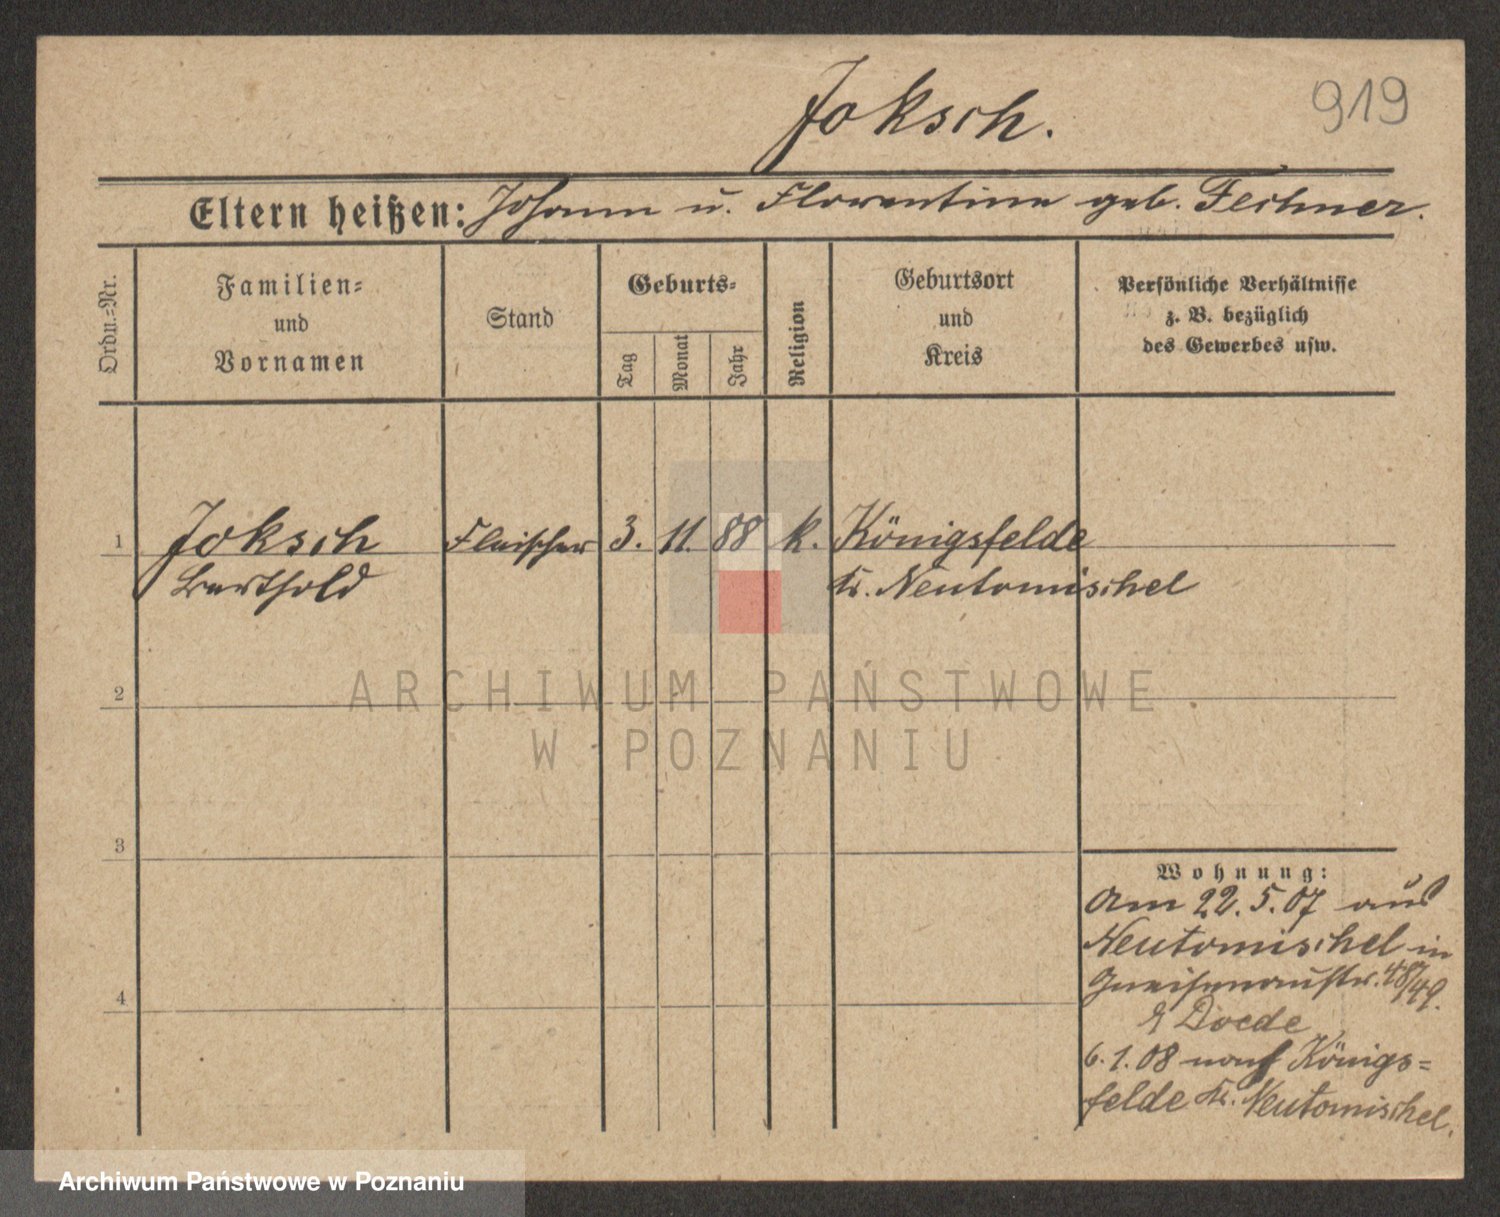 Joksch.
919
Eltern heißen: Johann u. Florentine geb. Fechner.
Ordn.-Nr.
Familien-
und
Vornamen
Stand
Geburts-
Tag
Monat
Jahr
Religion
Geburtsort
und
Kreis
Persönliche Verhältnisse
z. B. bezüglich
des Gewerbes usw.
1 Joksch Fleischer 3. 11. 88 k. Königsfelde
Berthold Kr. Neutomischel
2
ARCHIWUM PAŃSTWOWE
W POZNANIU
3
Wohnung:
Am 22.5.07 aus
Neutomischel in
Gneisenaustr. 48/49.
Doede
4
6.1.08 nach Königs=
felde Kr. Neutomischel.
Archiwum Państwowe w Poznaniu